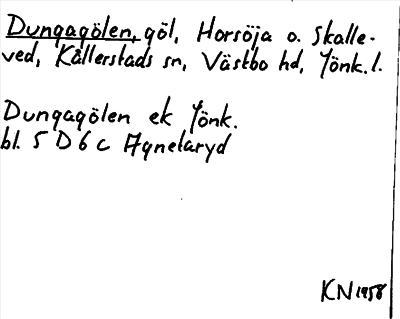 Dungagölen, göl, Horsöja o. Skalle-
ved, Kållerstads sn, Västbo hd, Jönk. l.
Dungagölen ek Jönk.
bl. 5 D 6 c Agnetaryd
KN 1958